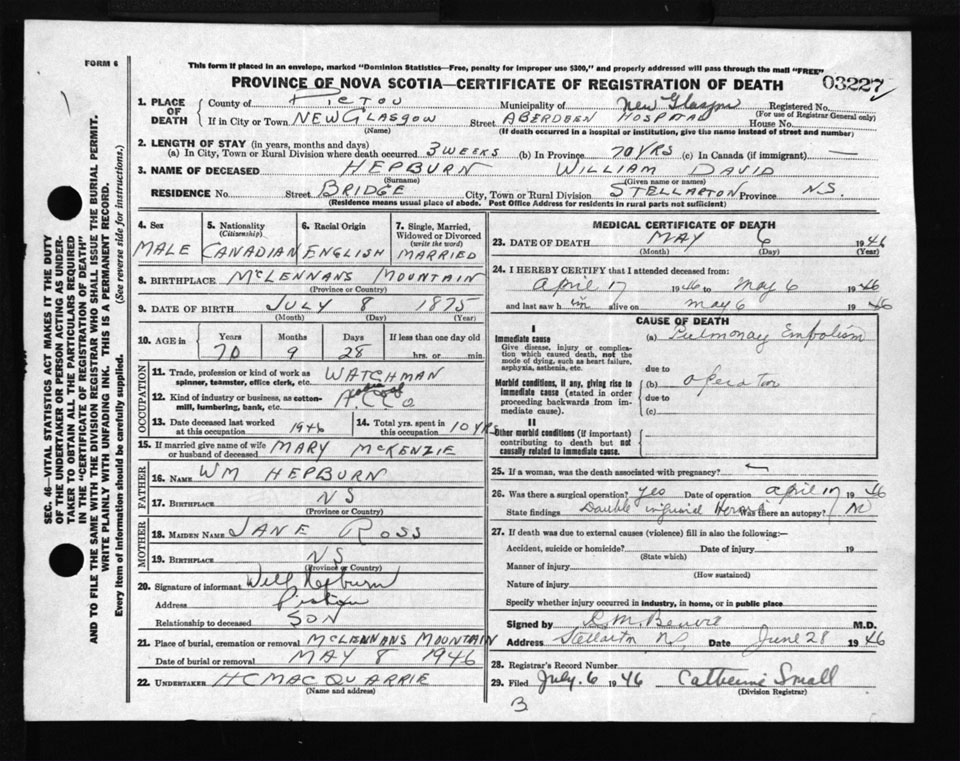 FORM 6
This form if placed in an envelope, marked "Dominion Statistics—Free, penalty for improper use $300," and properly addressed will pass through the mail "FREE"
PROVINCE OF NOVA SCOTIA—CERTIFICATE OF REGISTRATION OF DEATH
03227
1. PLACE OF DEATH
County of PICTOU Municipality of New Glasgow Registered No.
(For use of Registrar General only)
If in City or Town NEW GLASGOW Street ABERDEEN HOSPITAL House No.
(Name) (If death occurred in a hospital or institution, give the name instead of street and number)
2. LENGTH OF STAY (in years, months and days)
(a) In City, Town or Rural Division where death occurred 3 WEEKS (b) In Province 70 YRS (c) In Canada (if immigrant) —
3. NAME OF DECEASED HEPBURN WILLIAM DAVID
(Surname) (Given name or names)
RESIDENCE No. Street BRIDGE City, Town or Rural Division STELLARTON Province N.S.
(Residence means usual place of abode. Post Office Address for residents in rural parts not sufficient)
4. Sex MALE
5. Nationality (Citizenship) CANADIAN
6. Racial Origin ENGLISH
7. Single, Married, Widowed or Divorced (write the word) MARRIED
8. BIRTHPLACE McLENNANS MOUNTAIN
(Province or Country)
9. DATE OF BIRTH JULY 8 1875
(Month) (Day) (Year)
10. AGE in Years 70 Months 9 Days 28 If less than one day old hrs. or min.
OCCUPATION
11. Trade, profession or kind of work as spinner, teamster, office clerk, etc. WATCHMAN
12. Kind of industry or business, as cotton-mill, lumbering, bank, etc.
13. Date deceased last worked at this occupation 1946
14. Total yrs. spent in this occupation 10 YRS
15. If married give name of wife or husband of deceased MARY McKENZIE
FATHER
16. NAME WM HEPBURN
17. BIRTHPLACE NS
(Province or Country)
MOTHER
18. MAIDEN NAME JANE ROSS
19. BIRTHPLACE NS
(Province or Country)
20. Signature of informant Will Hepburn
Address Pictou
Relationship to deceased SON
21. Place of burial, cremation or removal McLENNANS MOUNTAIN
Date of burial or removal MAY 8 1946
22. UNDERTAKER HC MACQUARRIE
(Name and address)
MEDICAL CERTIFICATE OF DEATH
23. DATE OF DEATH MAY 6 1946
(Month) (Day) (Year)
24. I HEREBY CERTIFY that I attended deceased from:
April 17 1946 to May 6 1946
and last saw him alive on May 6 1946
CAUSE OF DEATH
I
Immediate cause (a) Pulmonay Embolism
Give disease, injury or complication which caused death, not the mode of dying, such as heart failure, asphyxia, asthenia, etc.
due to
Morbid conditions, if any, giving rise to immediate cause (stated in order proceeding backwards from immediate cause).
(b) operation
due to
(c)
II
Other morbid conditions (if important) contributing to death but not causally related to immediate cause.
25. If a woman, was the death associated with pregnancy?
26. Was there a surgical operation? Yes Date of operation April 17 1946
State findings Double inguinal Hernia Was there an autopsy? N
27. If death was due to external causes (violence) fill in also the following:—
Accident, suicide or homicide? Date of injury 19
(State which)
Manner of injury
(How sustained)
Nature of injury
Specify whether injury occurred in industry, in home, or in public place
Signed by M.D.
Address Stellarton NS Date June 28 1946
28. Registrar's Record Number
29. Filed July. 6 1946 Catherine Small
(Division Registrar)
3
SEC. 46—VITAL STATISTICS ACT MAKES IT THE DUTY
OF THE UNDERTAKER OR PERSON ACTING AS UNDER-
TAKER TO OBTAIN ALL THE PARTICULARS REQUIRED
IN THE "CERTIFICATE OF REGISTRATION OF DEATH"
AND TO FILE THE SAME WITH THE DIVISION REGISTRAR WHO SHALL ISSUE THE BURIAL PERMIT.
WRITE PLAINLY WITH UNFADING INK. THIS IS A PERMANENT RECORD.
Every item of information should be carefully supplied. (See reverse side for instructions.)